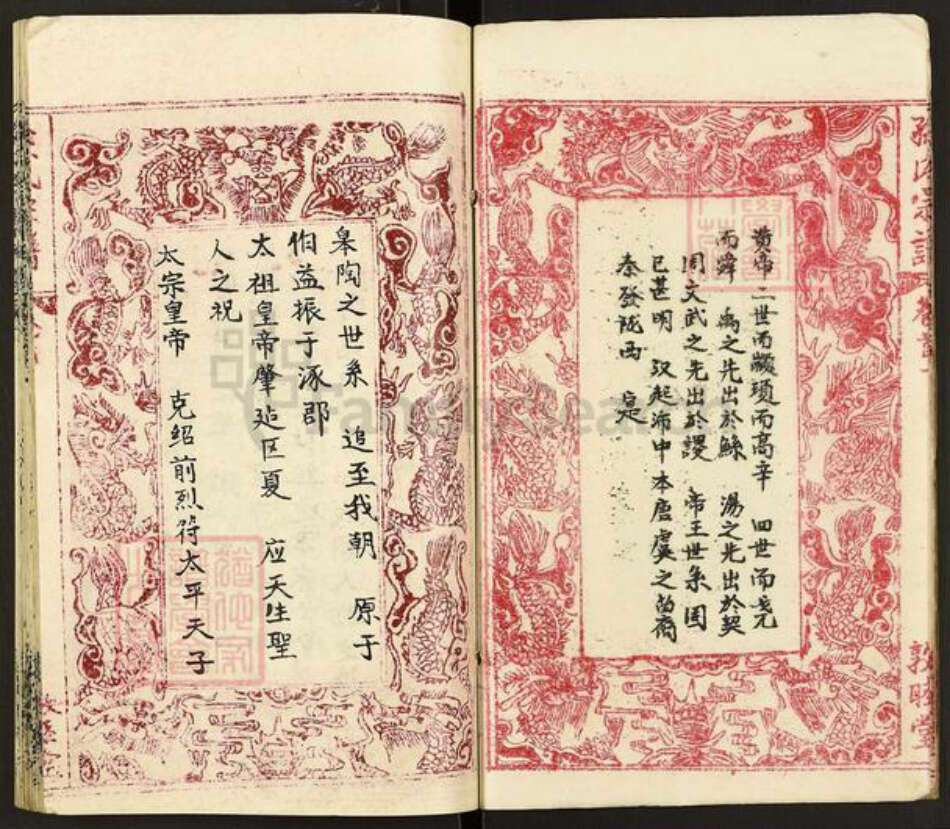 孫氏宗譜
敦睦堂
黄帝二世而颛頊而高辛 四世而尭
而舜 禹之先出於鲧 湯之先出於契
周文武之先出於稷 帝王世系固
已甚明 汉起沛中本唐虞之苗裔
秦發陇西 寔
皋陶之世系 追至我朝 原于
伯益振于涿郡
太祖皇帝肇造区夏 应天生聖
人之祝
太宗皇帝 克绍前烈符太平天子
FamilySearch